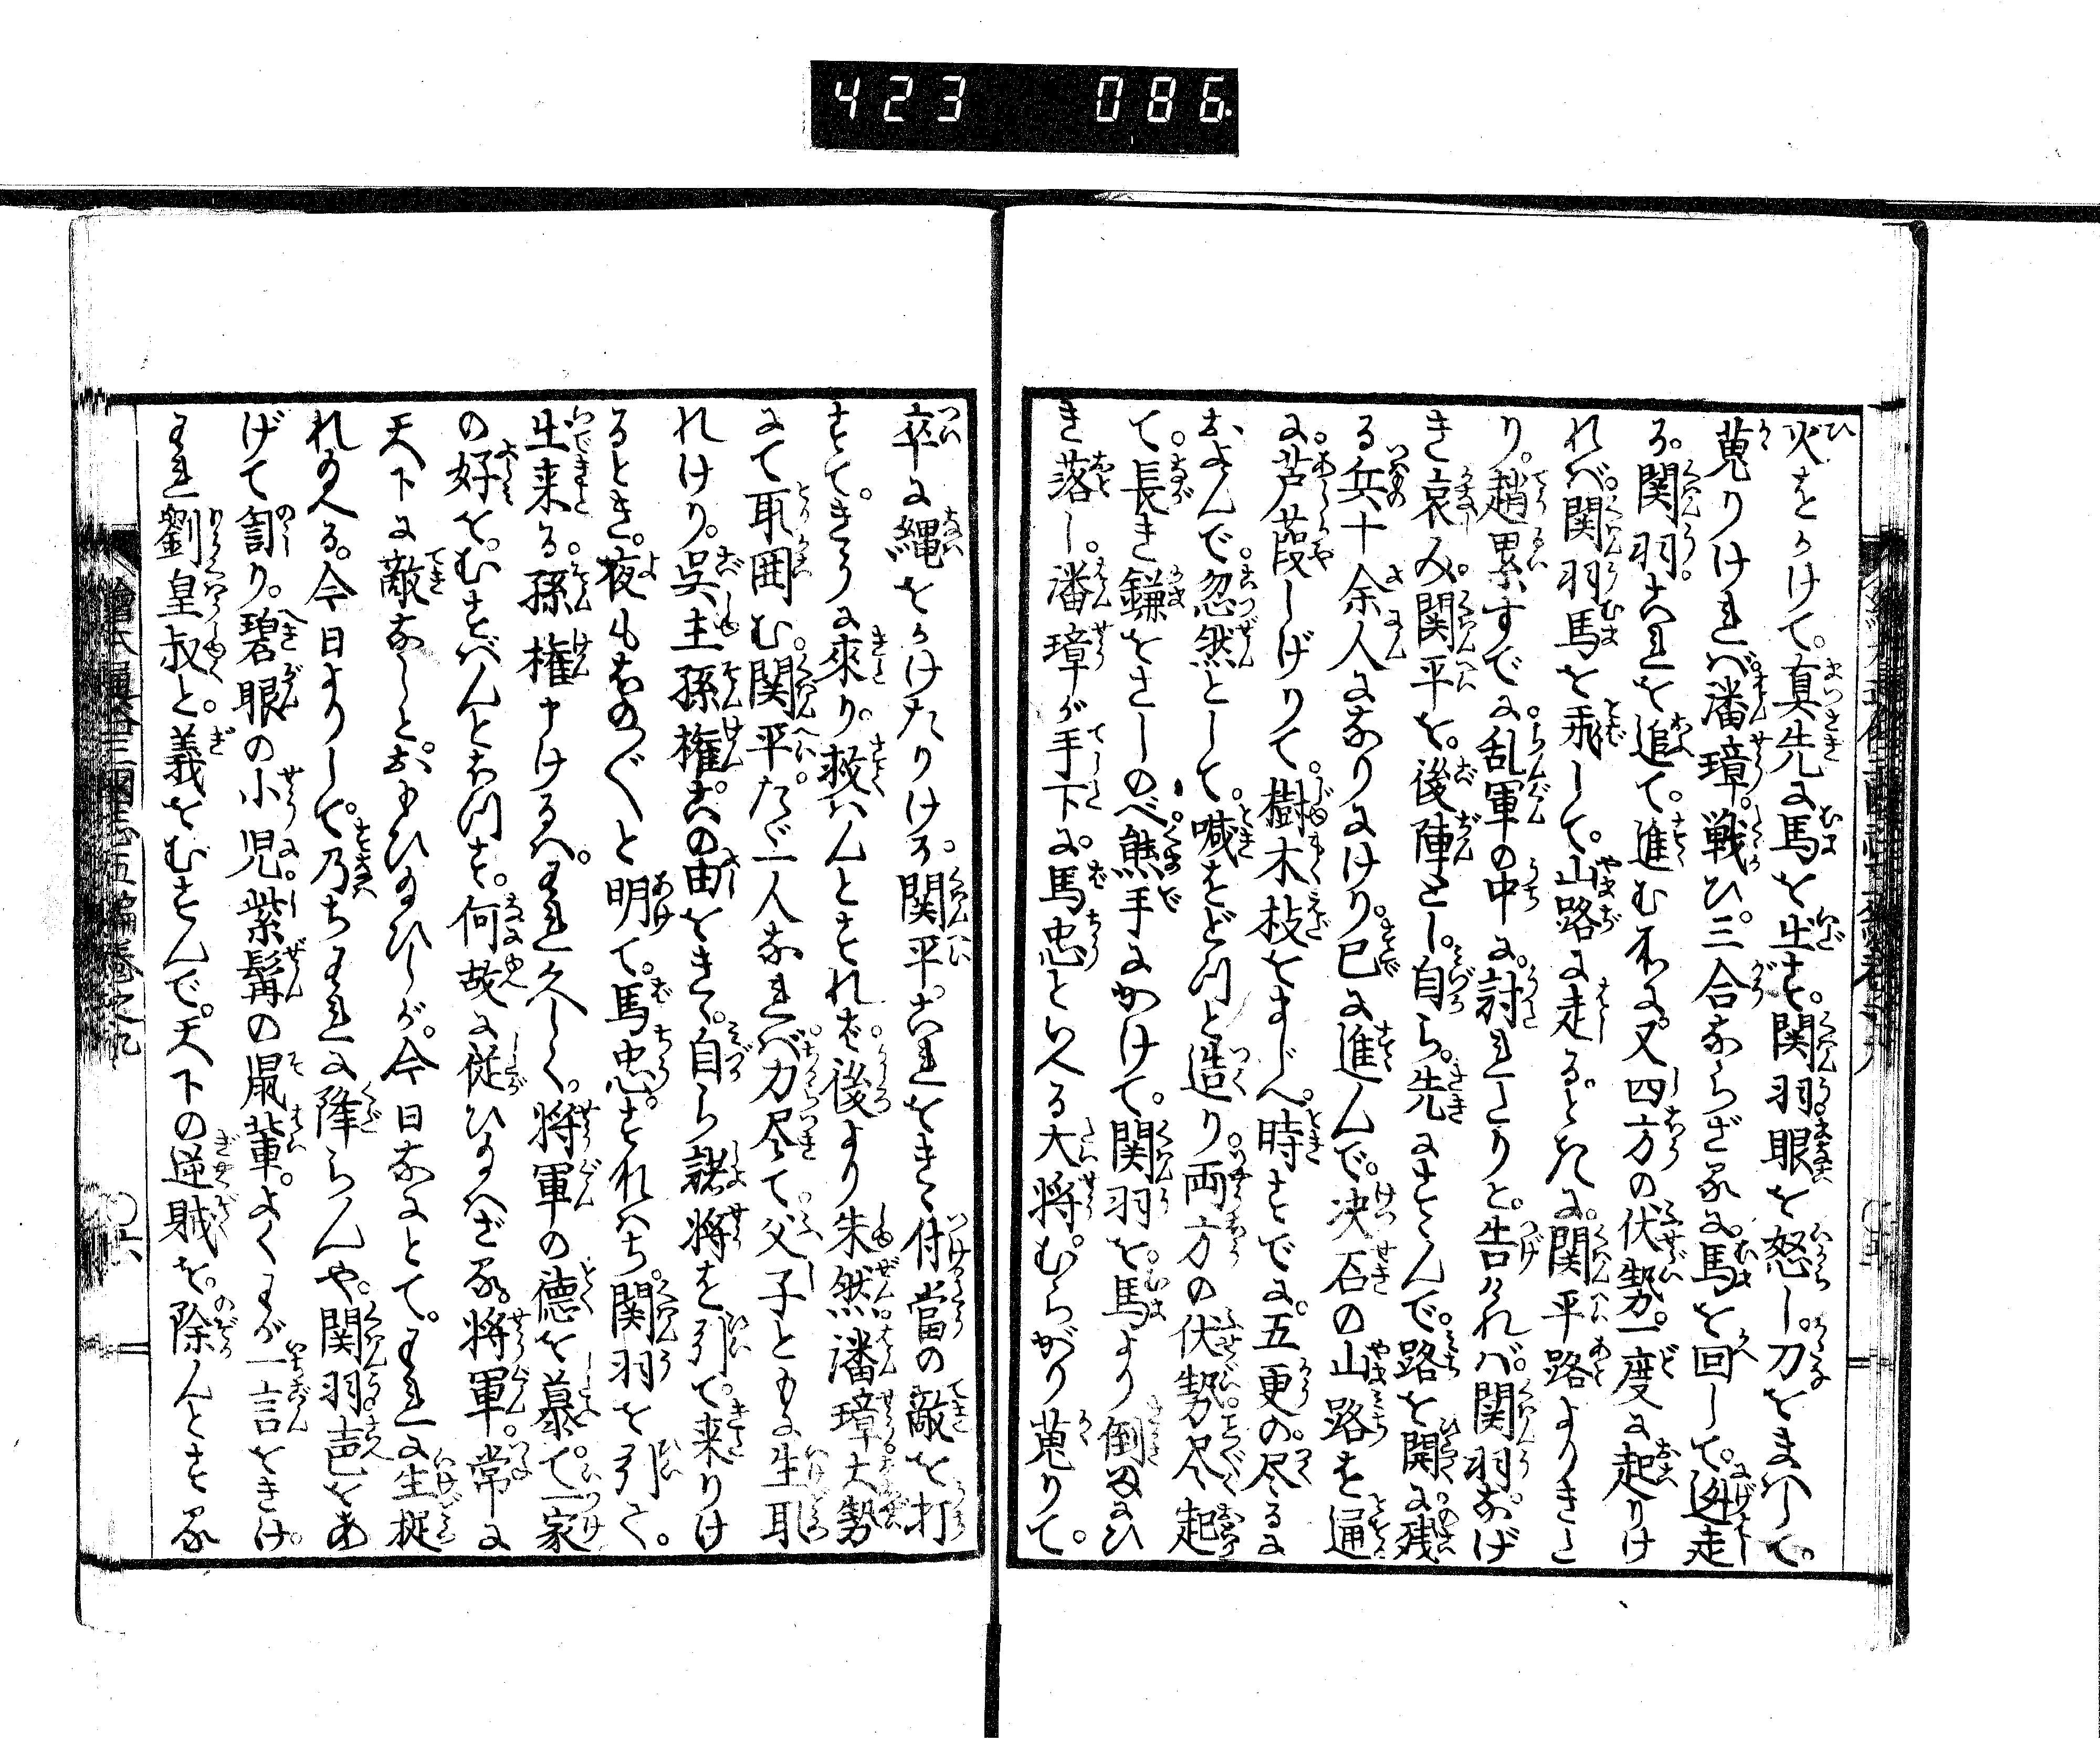 423 086
火をかけて。真先に馬を出す。関羽眼を怒し。刀をまはして。
蒐りければ。潘璋。戦ひ。三合ならざるに。馬を回して。逃走
る。関羽。これを追て。進む不に。又四方の伏勢。一度に起りけ
れば。関羽馬を飛して。山路に走る。ときに。関平路よりきた
り。趙累すでに。乱軍の中に。討れたりと。告ければ。関羽。なげ
き哀み。関平を。後陣とし。自ら。先にすゝんで。路を開くに。残
る兵十余人になりにけり。已に進んで。決石の山路を通る
に。芦葭しげりて。樹木枝をまじへ。時すでに。五更の。尽るに
およんで。忽然として。喊をどつと造り。両方の伏勢。尽く起
て。長き鎌をさしのべ。熊手にかけて。関羽を。馬より倒にひ
き落し。潘璋が手下に。馬忠といへる大将。むらがり蒐りて。
卒に縄をかけたりける。関平。これをきゝ付。當の敵を打
すて。きうに來り。救はんとすれば。後より朱然。潘璋。大勢
にて取囲む。関平。たゞ一人なれば。力尽て。父子ともに生取
れけり。呉主孫権。此の由をきゝ。自ら諸将を引て。来りけ
るとき。夜もほの〴〵と明て。馬忠。すなはち。関羽を引て。
出来る。孫権申けるは。われ久しく。将軍の徳を慕て。一家
の好を。むすばんとおもふ。何故に従ひ給はざる。将軍。常に
天下に敵なしと。おもひ給ひしが。今日なにとて。われに生捉
れ給へる。今日よりして。乃ちわれに降らんや。関羽声をあ
げて罰り。碧眼の小児。紫髯の鼠輩。よくわが一言をきけ。
われ劉皇叔と。義をむすんで。天下の逆賊を。除んとする
繪本通俗三國志五編巻之九